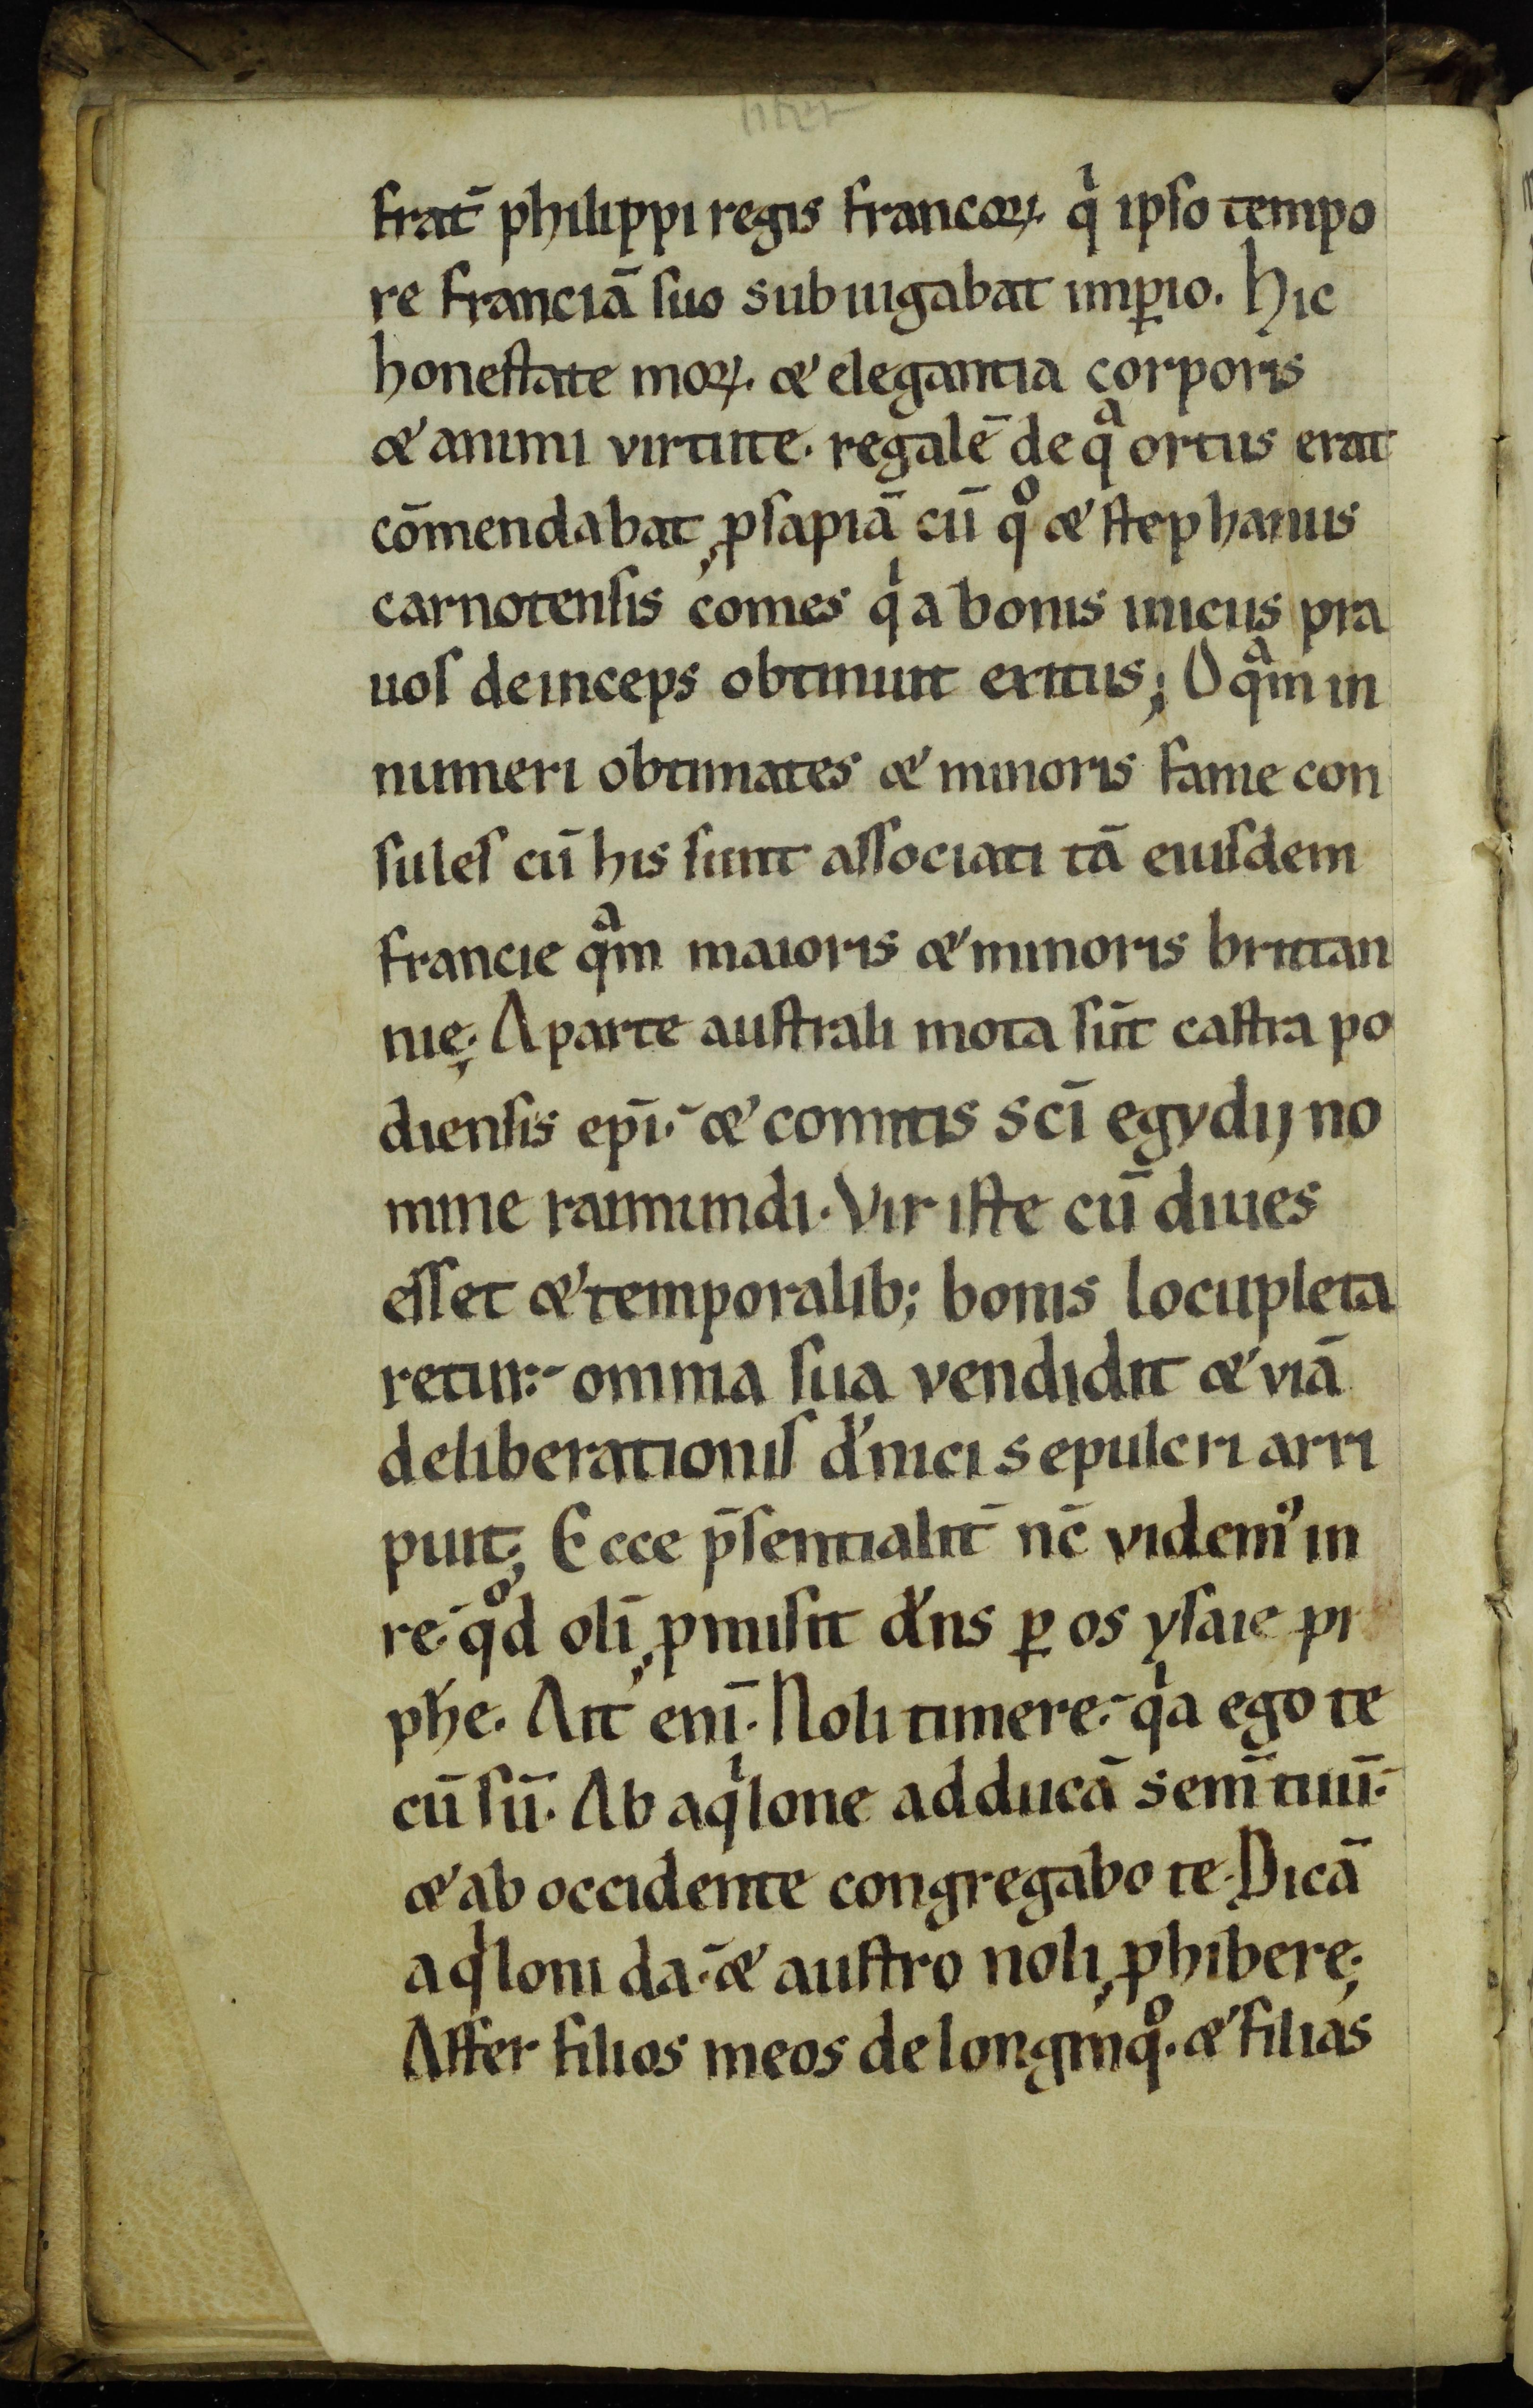 liber
frat̄ philippi regis francoꝝ. qͥ ipso tempo
re franciā suo subiugabat imꝑio. Hic
honestate moꝝ. & elegantia corporis
& animi virtute. regalē de qͣ ortus erat
cōmendabat ꝓsapiā cū qͦ & stephanus
carnotensis comes qͥ a bonis inicus pra
uos deinceps obtinuit exitus; O qͣm in
numeri obtimates & minoris fame con
sules cū his sunt associati tā eiusdem
francie qͣm maioris & minoris brittan
nię. A parte australi mota sūt castra po
diensis ep̄i. & comitis sc̄i egydij no
mine raimundi. Vir iste cū diues
esset & temporalib; bonis locupleta
retur. omnia sua vendidit & viā
deliberationis d̄nici sepulcri arri
puit; Ecce p̄sentialit̄ nc̄ videmꝰ in
re. qͦd olī ꝓmisit d̄ns ꝑ os ysaie pr
phe. Ait enī. Noli timere. qͥa ego te
cū sū. Ab aqͥlone adducā sem̄ tuū.
& ab occidente congregabo te. Dicā
aqͥloni da. & austro noli ꝓhibere.
Affer filios meos de longinqͦ. & filias